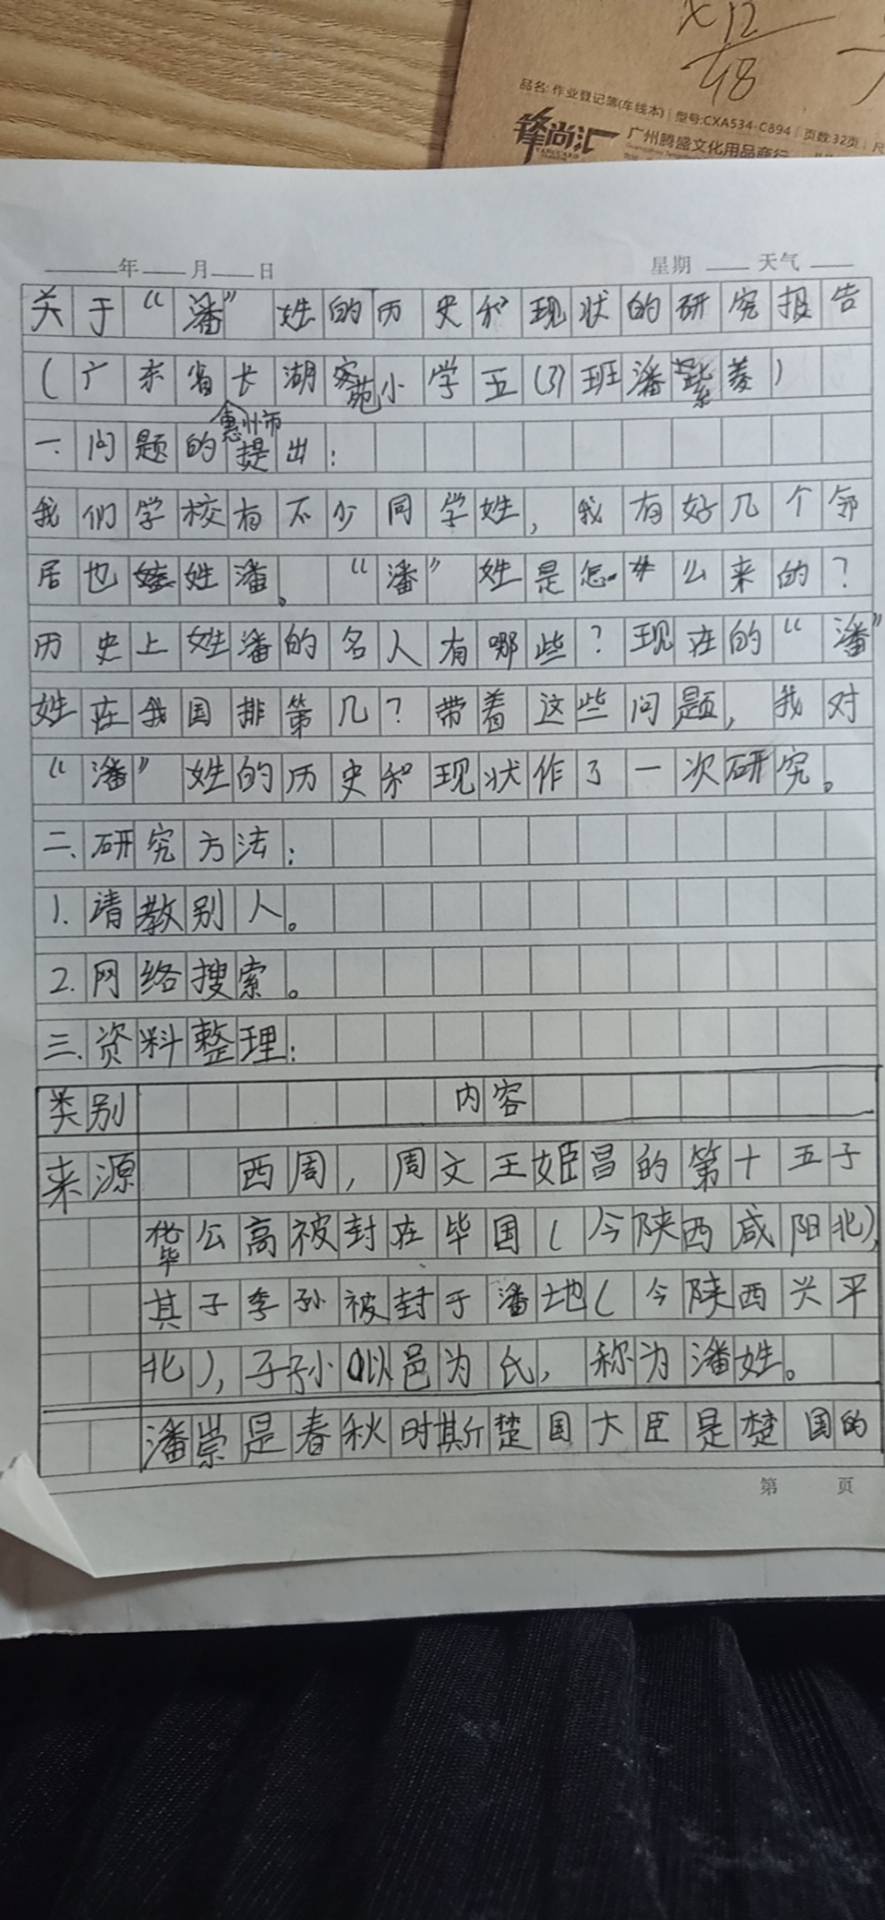 ×12
48
品名:作业登记簿(车线本) 型号:CXA534-C894 页数:32页
锋尚汇 广州腾盛文化用品商行
年 月 日 星期 天气
关于“潘”姓的历史和现状的研究报告
(广东省惠州市长湖苑小学五(3)班潘紫菱)
一.问题的提出:
我们学校有不少同学姓,我有好几个邻
居也姓潘。“潘”姓是怎么来的?
历史上姓潘的名人有哪些?现在的“潘”
姓在我国排第几?带着这些问题,我对
“潘”姓的历史和现状作了一次研究。
二、研究方法:
1.请教别人。
2.网络搜索。
三.资料整理:
类别 内容
来源 西周,周文王姬昌的第十五子
毕公高被封在毕国(今陕西咸阳北),
其子季孙被封于潘地(今陕西兴平
北),子孙以邑为氏,称为潘姓。
潘崇是春秋时期楚国大臣是楚国的
第 页